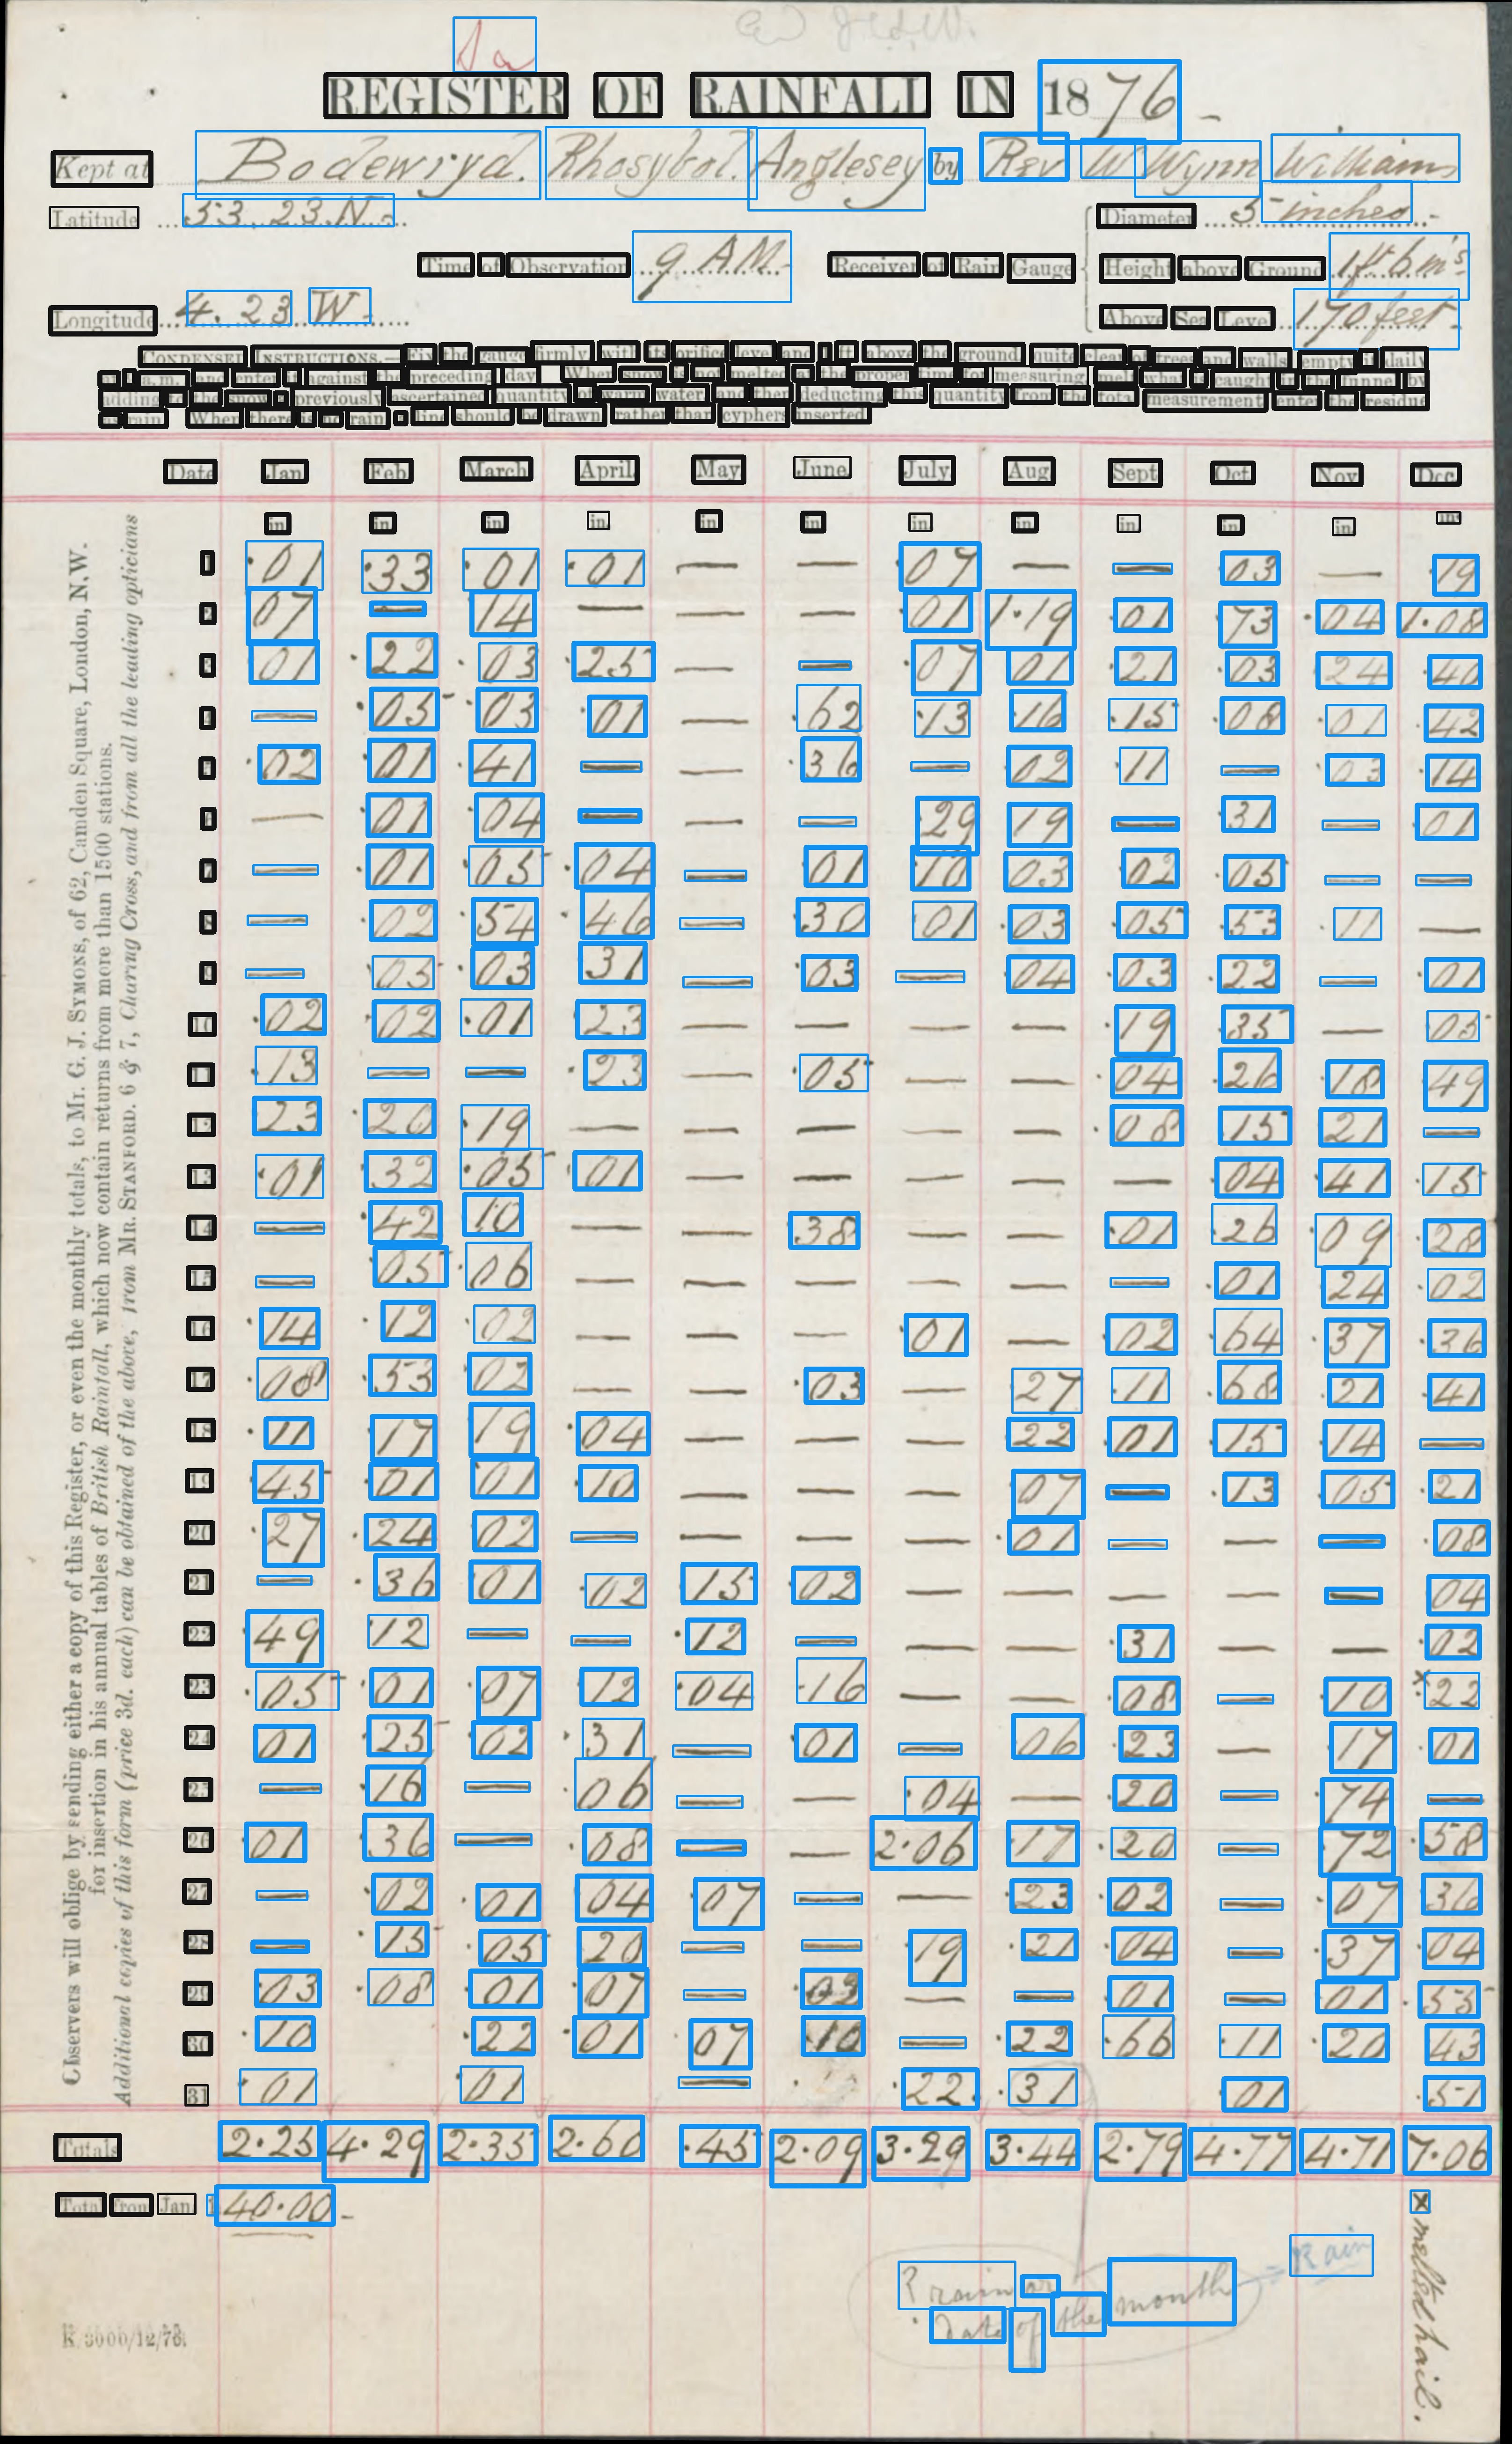 Sa
REGISTER OF RAINFALL IN 1876 -
Kept at Bodewryd. Rhosybol. Anglesey by Rev W Wynn Williams
Latitude 53. 23 N. -
Diameter 5 inches -
Time of Observation 9 A.M.
Receiver of Rain Gauge
Height above Ground 1ft 6 ins
Longitude 4. 23 W -
Above Sea Level 170 feet -
CONDENSED INSTRUCTIONS.—Fix the gauge firmly, with its orifice level and 1 ft. above the ground, quite clear of trees and walls; empty it daily
at 9 a.m., and enter it against the preceding day. When snow is not melted at the proper time for measuring, melt what is caught in the funnel by
adding to the snow a previously ascertained quantity of warm water, and then deducting this quantity from the total measurement, enter the residue
as rain. When there is no rain, a line should be drawn rather than cyphers inserted.
Date Jan. Feb. March April. May. June. July. Aug. Sept. Oct. Nov. Dec.
in. in. in. in. in. in. in. in. in. in. in. in.
1 ·01 ·33 ·01 ·01 — — ·07 — — ·03 — ·19
2 ·07 — ·14 — — — ·01 1·19 ·01 ·73 ·04 1·08
3 ·01 ·22 ·03 ·25 — — ·07 ·01 ·21 ·03 ·24 ·40
4 — ·05 ·03 ·01 — ·62 ·13 ·16 ·15 ·08 ·01 ·42
5 ·02 ·01 ·41 — — ·36 — ·02 ·11 — ·03 ·14
6 — ·01 ·04 — — — ·29 ·19 — ·31 — ·01
7 — ·01 ·05 ·04 — ·01 ·10 ·03 ·02 ·05 — —
8 — ·02 ·54 ·46 — ·30 ·01 ·03 ·05 ·53 ·11 —
9 — ·05 ·03 ·31 — ·03 — ·04 ·03 ·22 — ·01
10 ·02 ·02 ·01 ·23 — — — — ·19 ·35 — ·05
11 ·13 — — ·23 — ·05 — — ·04 ·26 ·18 ·49
12 ·23 ·20 ·19 — — — — — ·08 ·15 ·21 —
13 ·01 ·32 ·05 ·01 — — — — — ·04 ·41 ·15
14 — ·42 ·10 — — ·38 — — ·01 ·26 ·09 ·28
15 — ·05 ·06 — — — — — — ·01 ·24 ·02
16 ·14 ·12 ·02 — — — ·01 — ·02 ·64 ·37 ·36
17 ·08 ·53 ·02 — — ·03 — ·27 ·11 ·68 ·21 ·41
18 ·11 ·17 ·19 ·04 — — — ·22 ·01 ·15 ·14 —
19 ·45 ·01 ·01 ·10 — — — ·07 — ·13 ·05 ·21
20 ·27 ·24 ·02 — — — — ·01 — — — ·08
21 — ·36 ·01 ·02 ·15 ·02 — — — — — ·04
22 ·49 ·12 — — ·12 — — — ·31 — — ·02
23 ·05 ·01 ·07 ·12 ·04 ·16 — — ·08 — ·10 ×·22
24 ·01 ·25 ·02 ·31 — ·01 — ·06 ·23 — ·17 ·01
25 — ·16 — ·06 — — ·04 — ·20 — ·74 —
26 ·01 ·36 — ·08 — — 2·06 ·17 ·20 — ·72 ·58
27 — ·02 ·01 ·04 ·07 — — ·23 ·02 — ·07 ·36
28 — ·15 ·05 ·20 — — ·19 ·21 ·04 — ·37 ·04
29 ·03 ·08 ·01 ·07 — ·02 — — ·01 — ·01 ·55
30 ·10 ·22 ·01 ·07 ·10 — ·22 ·66 ·11 ·20 ·43
31 ·01 ·01 — ·22 ·31 ·01 ·51
Totals 2·25 4·29 2·35 2·60 ·45 2·09 3·29 3·44 2·79 4·77 4·71 7·06
Total from Jan. 1 40·00 -
? rain or
Date of the month
= Rain
× melted hail.
Observers will oblige by sending either a copy of this Register, or even the monthly totals, to Mr. G. J. SYMONS, of 62, Camden Square, London, N.W.
for insertion in his annual tables of British Rainfall, which now contain returns from more than 1500 stations.
Additional copies of this form (price 3d. each) can be obtained of the above, from Mr. STANFORD, 6 & 7, Charing Cross, and from all the leading opticians